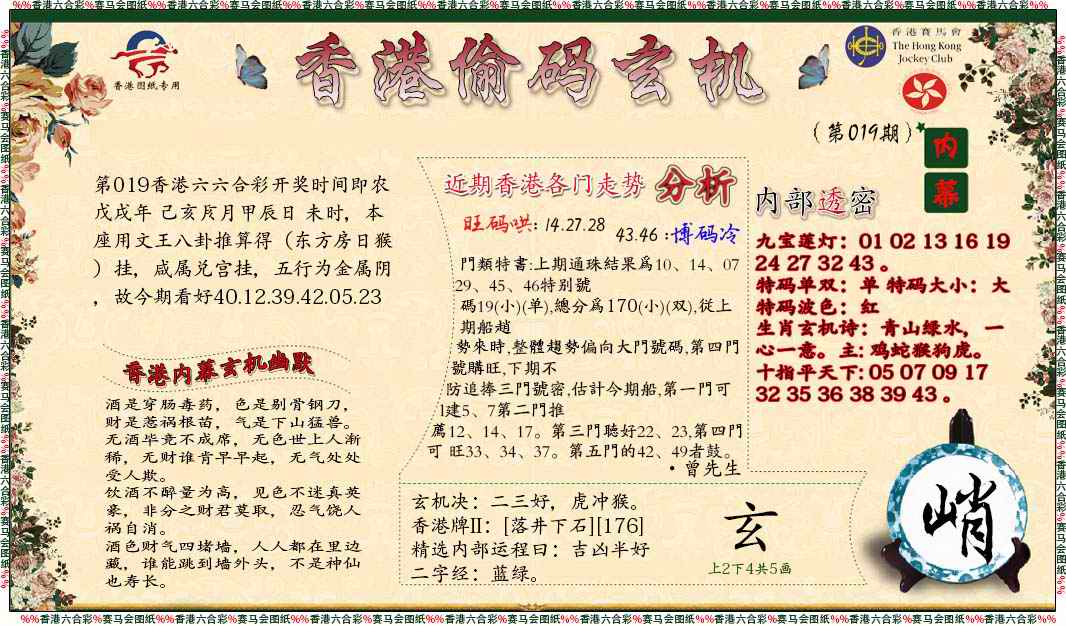 %%香港六合彩%赛马会图纸%%香港六合彩%赛马会图纸%%香港六合彩%赛马会图纸%%香港六合彩%赛马会图纸%%香港六合彩%赛马会图纸%%香港六合彩%赛马会图纸%%香港六合彩%%
香港图纸专用
香港偷码玄机
香港賽馬會
The Hong Kong
Jockey Club
(第019期)
内
幕
第019香港六六合彩开奖时间即农
戊戌年 己亥房月甲辰日 未时，本
座用文王八卦推算得（东方房日猴
）挂，咸属兑宫挂，五行为金属阴
，故今期看好40.12.39.42.05.23
香港内幕玄机幽默
酒是穿肠毒药，色是剔骨钢刀，
财是惹祸根苗，气是下山猛兽。
无酒毕竟不成席，无色世上人渐
稀，无财谁肯早早起，无气处处
受人欺。
饮酒不醉量为高，见色不迷真英
豪，非分之财君莫取，忍气饶人
祸自消。
酒色财气四堵墙，人人都在里边
藏，谁能跳到墙外头，不是神仙
也寿长。
近期香港各门走势 分析
旺码哄: 14.27.28
43.46 :博码冷
門類特書:上期通珠結果爲10、14、07
29、45、46特別號
碼19(小)(单),總分爲170(小)(双),従上
期船趙
勢來時,整體趨勢偏向大門號碼,第四門
號購旺,下期不
防追捧三門號密,估計今期船,第一門可
1建5、7第二門推
薦12、14、17。第三門聴好22、23,第四門
可 旺33、34、37。第五門的42、49者鼓。
・曾先生
玄机决：二三好，虎冲猴。
香港牌II：[落井下石][176]
精选内部运程曰：吉凶半好
二字经：蓝绿。
玄
上2下4共5画
内部透密
九宝莲灯：01 02 13 16 19
24 27 32 43 。
特码单双：单 特码大小：大
特码波色：红
生肖玄机诗：青山绿水，一
心一意。主: 鸡蛇猴狗虎。
十指平天下: 05 07 09 17
32 35 36 38 39 43 。
峭
%%香港六合彩%赛马会图纸%%香港六合彩%赛马会图纸%%香港六合彩%赛马会图纸%%香港六合彩%赛马会图纸%%香港六合彩%赛马会图纸%%香港六合彩%赛马会图纸%%香港六合彩%%